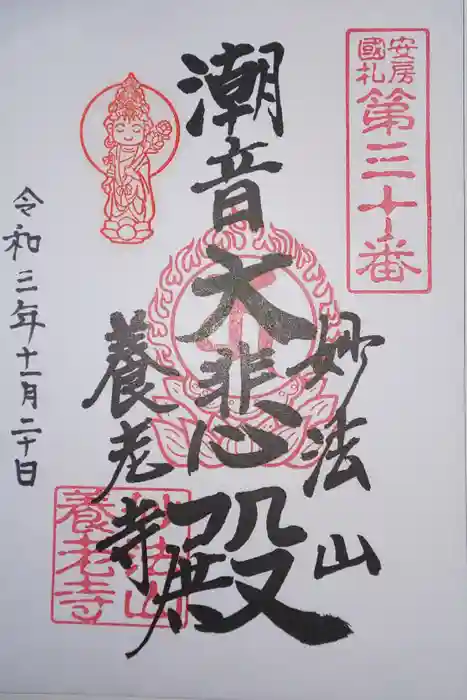 安房
國札
第三十番
妙法山
潮音大悲殿
養老寺
令和三年十一月二十日
妙法山
養老寺